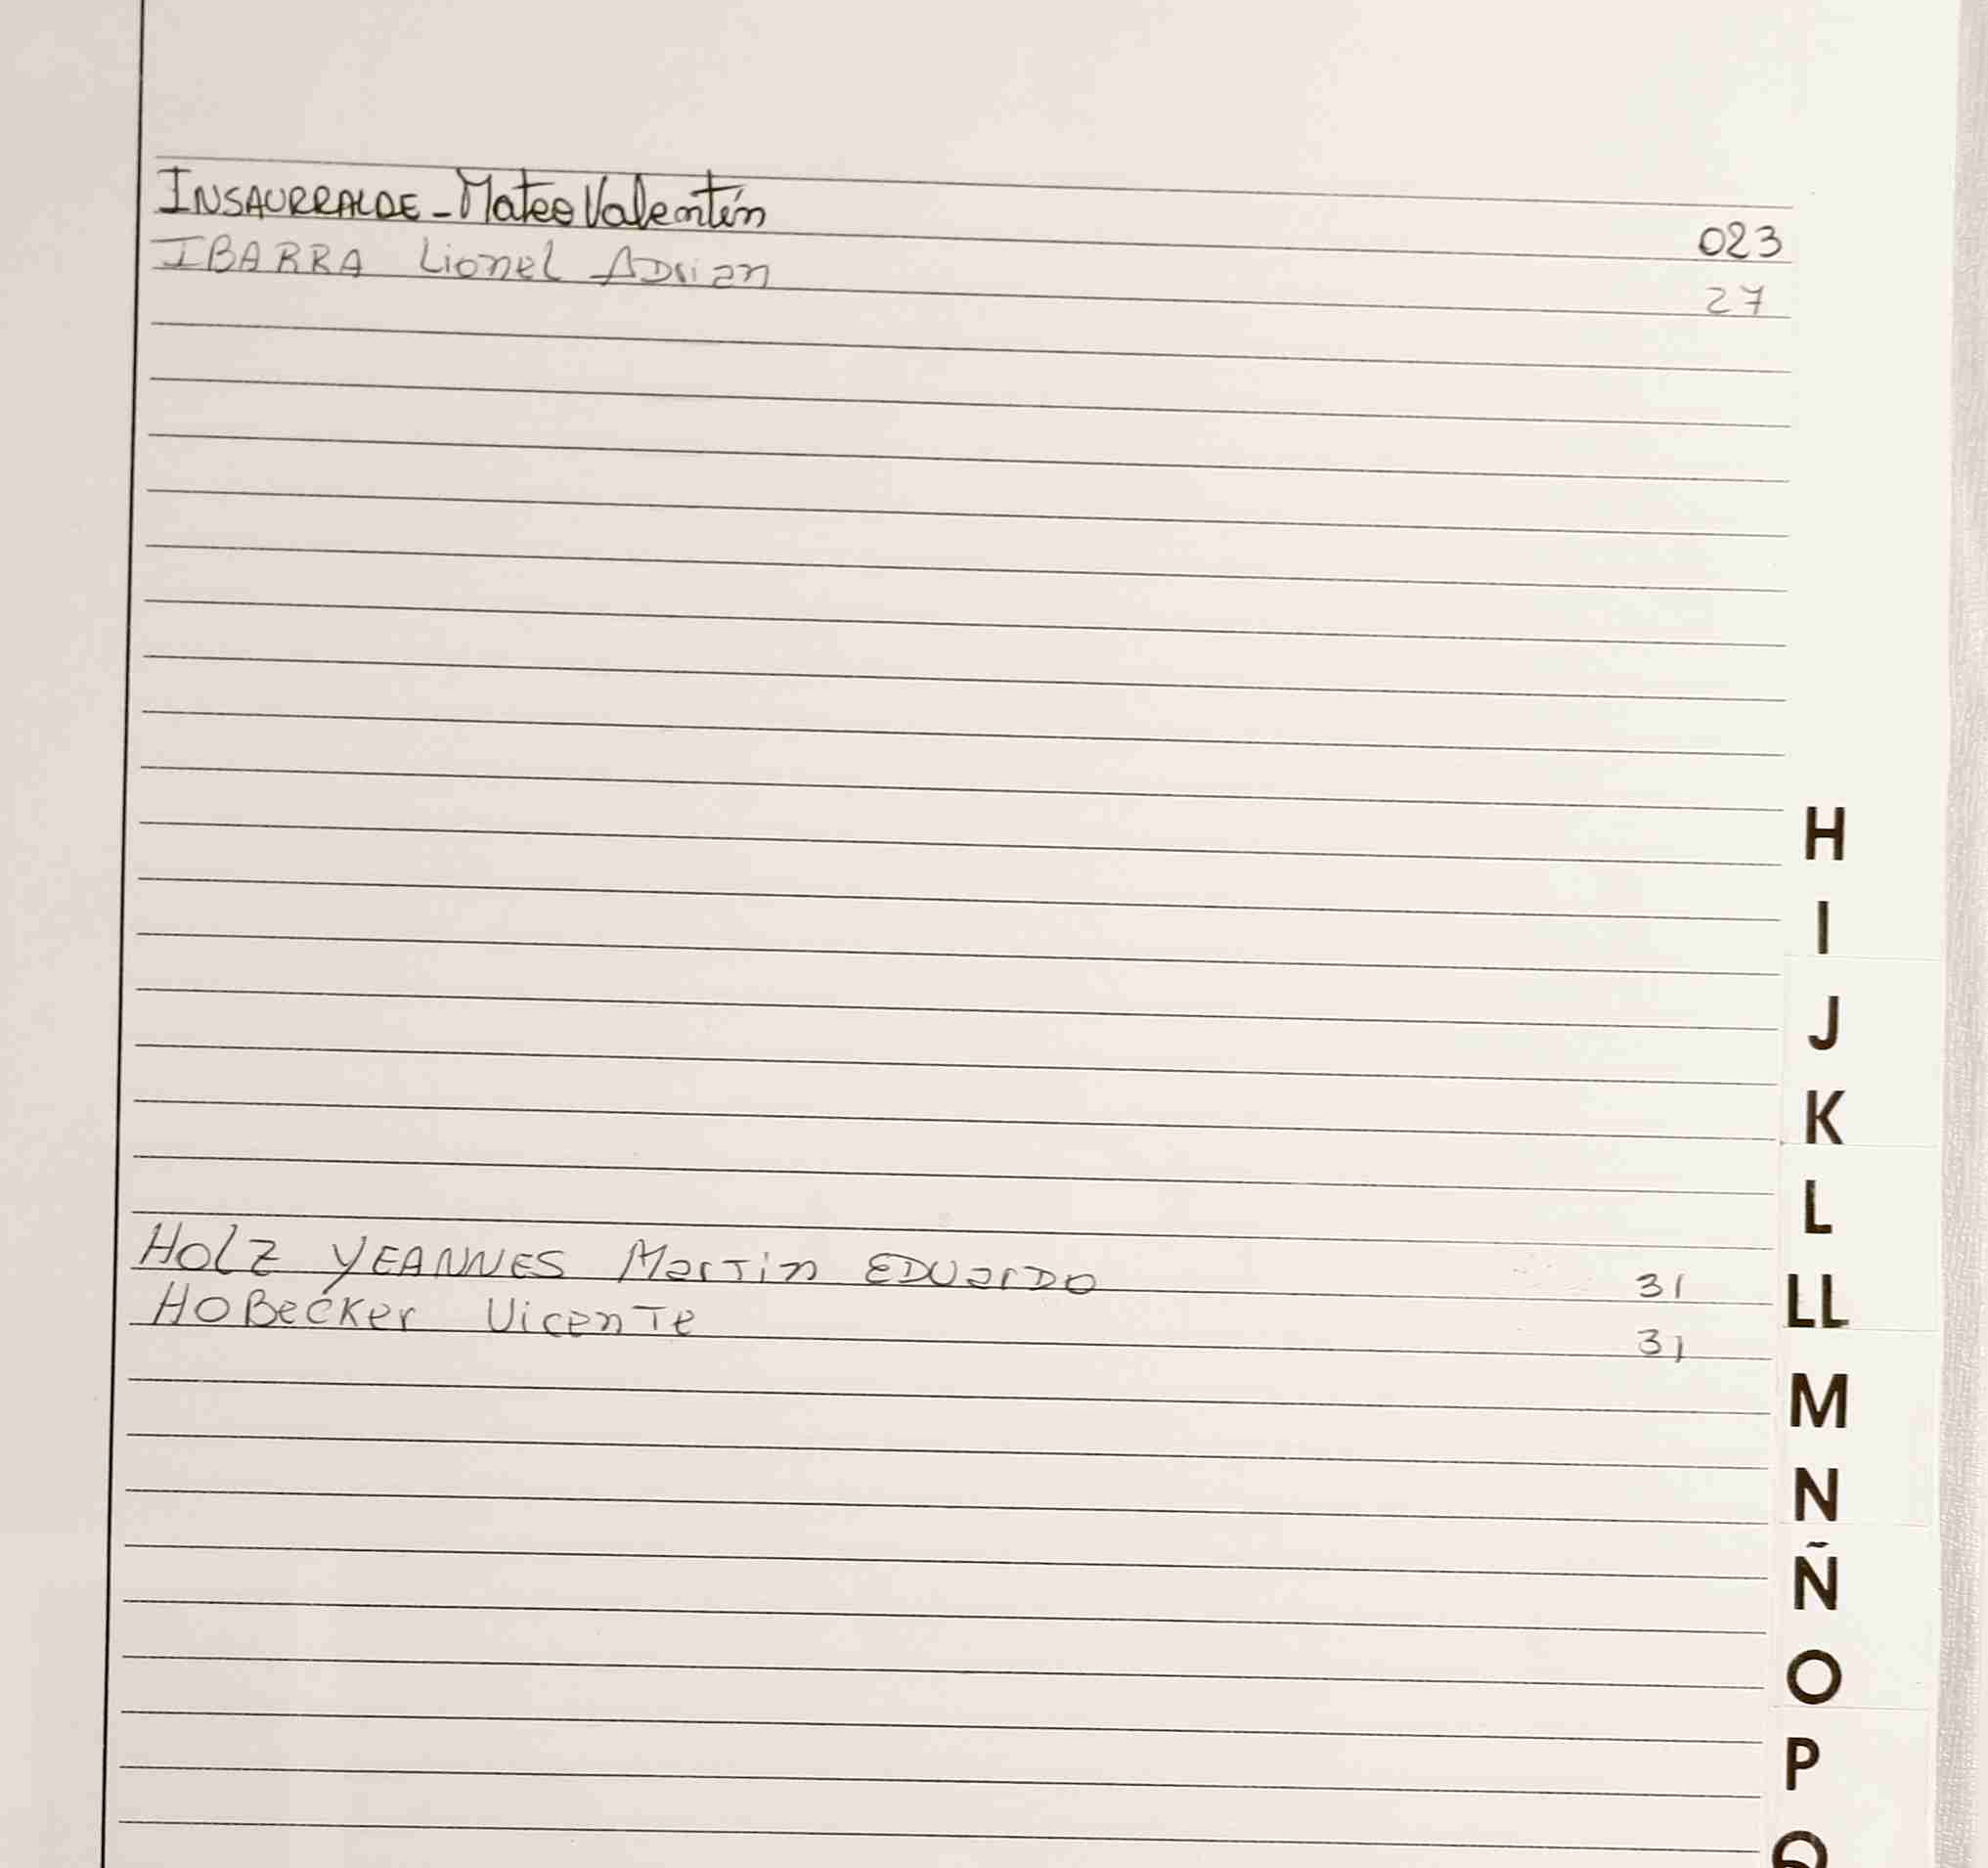 INSAURRALDE - Mateo Valentín 023
IBARRA Lionel Adrian 27
H
I
J
K
L
HOLZ YEANNES Martin EDUARDO 31
LL
HOBecker Vicente 31
M
N
Ñ
O
P
Q